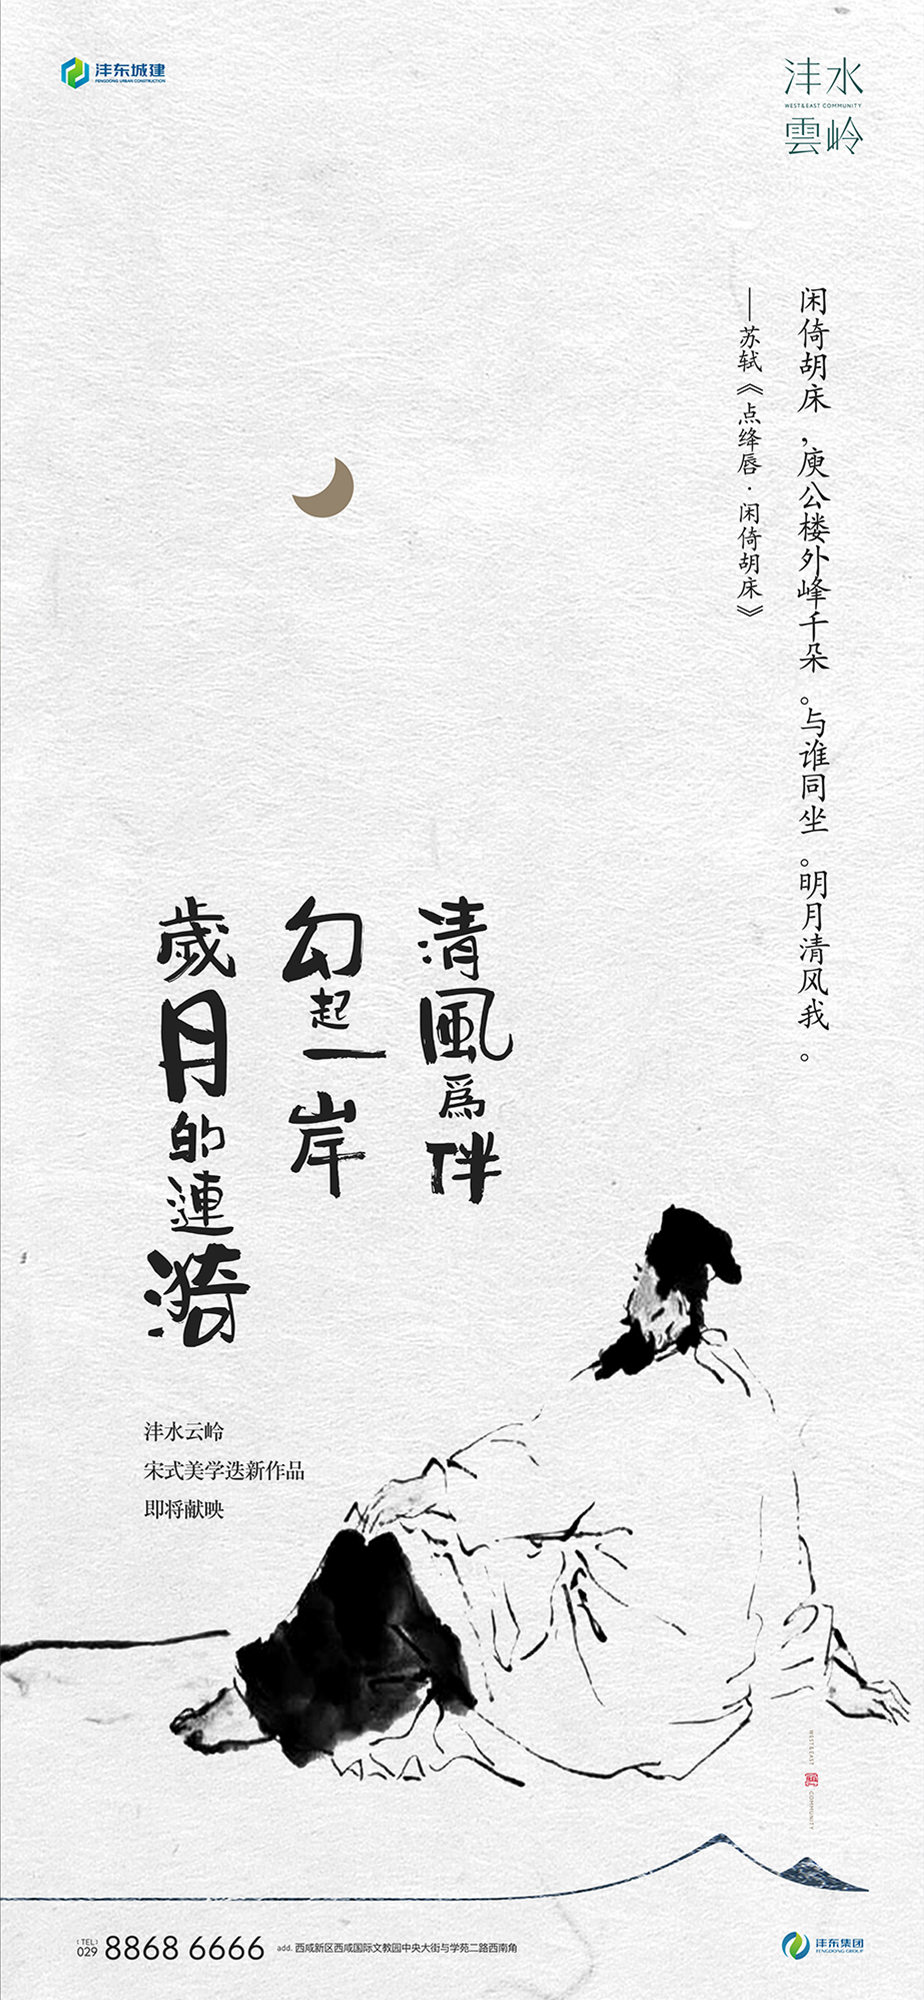 沣东城建
FENGDONG URBAN CONSTRUCTION
沣水
WEST&EAST COMMUNITY
雲岭
闲倚胡床,庾公楼外峰千朵。与谁同坐。明月清风我。
——苏轼《点绛唇·闲倚胡床》
清風爲伴
勾起一岸
歲月的連漪
沣水云岭
宋式美学迭新作品
即将献映
WEST&EAST
COMMUNITY
(TEL)
029 8868 6666
add. 西咸新区西咸国际文教园中央大街与学苑二路西南角
沣东集团
FENGDONG GROUP